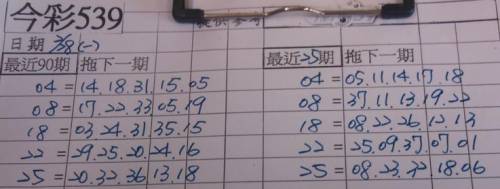 今彩539
提供參考
日期 2/28(一)
最近90期 拖下一期
04 = 14.18.31.15.05
08 = 17.22.33.05.19
18 = 03.24.31.35.15
22 = 29.25.20.24.16
25 = 20.32.36.13.18
最近25期 拖下一期
04 = 05.11.14.17.18
08 = 37.11.13.19.22
18 = 08.22.26.12.13
22 = 25.09.37.07.01
25 = 08.23.32.18.06